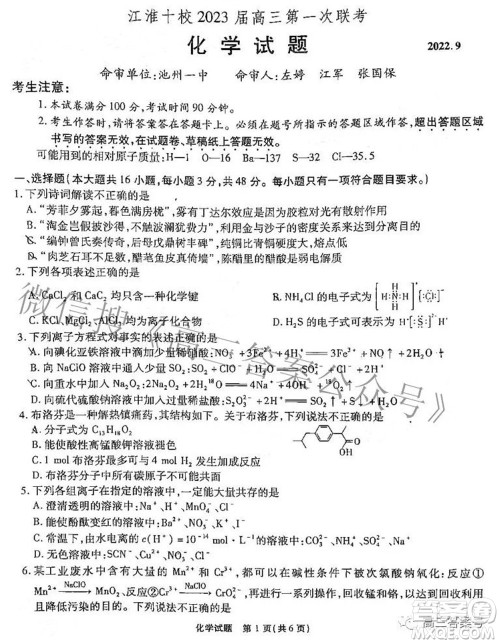 江淮十校2023届高三第一次联考
化学试题
2022.9
命审单位:池州一中 命审人:左婷 江军 张国保
考生注意:
1.本试卷满分100分,考试时间90分钟。
2.考生作答时,请将答案答在答题卡上。必须在题号所指示的答题区域作答,超出答题区域
书写的答案无效,在试题卷、草稿纸上答题无效。
可能用到的相对原子质量:H—1 O—16 Ba—137 S—32 Cl—35.5
一、选择题(本大题共16小题,每小题3分,共48分。每小题只有一项符合题目要求。)
1.下列诗词解读不正确的是
A.“芳菲夕雾起,暮色满房栊”,雾有丁达尔效应是因为胶粒对光有散射作用
B.“淘金岂假披沙得,不触波澜要则化”,利用金和沙子的密度关系来达到分离的目的
C.“编钟曾氏奏传奇,后母戊鼎树丰碑”,纯铜比青铜硬度大,熔点低
D.“肉芝石耳不足数,醋芼鱼皮真倚墙”,陈醋里的醋酸是弱电解质
2.下列各项表述正确的是
A.CaCl₂和CaC₂均只含一种化学键
B.NH₄Cl的电子式为
C.KCl、MgCl₂、AlCl₃均为离子化合物
D.H₂S的电子式可表示为
3.下列离子方程式为事实的表述正确的是
A.向碘化亚铁溶液中滴加少量稀硝酸:NO₃⁻+3Fe²⁺+4H⁺═3Fe³⁺+NO↑+2H₂O
B.向NaClO溶液中通入少量SO₂:
C.向重水中加入Na₂O₂:
D.向硫代硫酸钠溶液中加入过量稀硝酸:
4.布洛芬是一种解热镇痛药,其结构如下。关于布洛芬,下列说法不正确的是
A.分子式为C₁₃H₁₈O₂
B.能使酸性高锰酸钾溶液褪色
C.1 mol布洛芬最多可与4 mol H₂发生加成反应
D.布洛芬分子中所有碳原子不可能共面
OH
O
5.下列各组离子在指定的溶液中,一定能大量共存的是
A.澄清透明的溶液中:Na⁺、H⁺、MnO₄⁻、Cl⁻
B.能使酚酞变红的溶液中:Ba²⁺、NO₃⁻、K⁺、Cl⁻
C.常温下,由水电离的c(H⁺)=10⁻¹⁴ mol·L⁻¹的溶液中:
D.无色溶液中:SCN⁻、Cu²⁺、I⁻、Cl⁻
6.某工业废水中含有大量的Mn²⁺和Cr³⁺,都可以在碱性条件下被次氯酸钠氧化:反应①
Mn²⁺ NaClO→MnO₂、反应②Cr³⁺ NaClO→CrO₄²⁻,可以达到回收利用
且降低污染的目的。下列说法正确的是
化学试题 第1页(共6页)
微信搜《高三答案公众号》
高三答案号